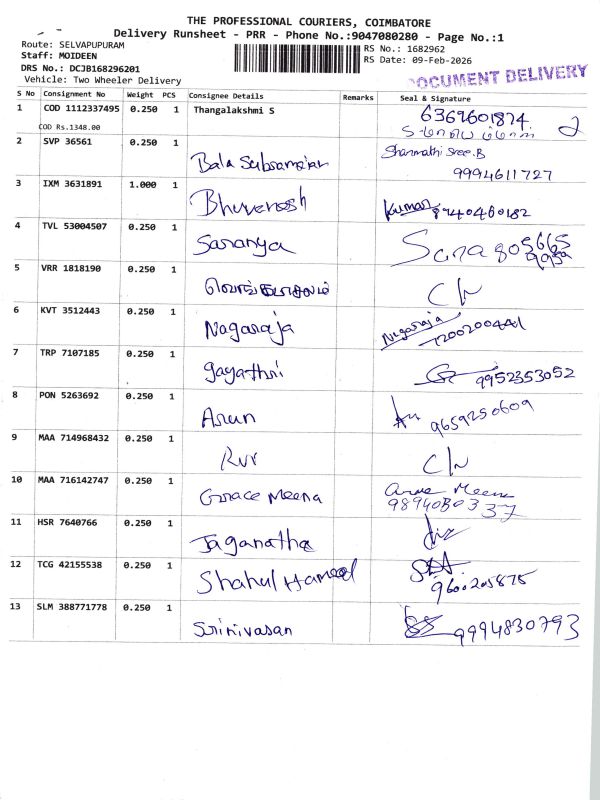 THE PROFESSIONAL COURIERS, COIMBATORE
Delivery Runsheet - PRR - Phone No.:9047080280 - Page No.:1
Route: SELVAPUPURAM
Staff: MOIDEEN
DRS No.: DCJB168296201
Vehicle: Two Wheeler Delivery
RS No.: 1682962
RS Date: 09-Feb-2026
DOCUMENT DELIVERY
S No Consignment No Weight PCS Consignee Details Remarks Seal & Signature
1 COD 1112337495 0.250 1 Thangalakshmi S 6369601874
COD Rs.1348.00 2
2 SVP 36561 0.250 1 Bala Subramanian Shanmathi Sree.B
9994611727
3 IXM 3631891 1.000 1 Bhuvenesh Kumar 8940480182
4 TVL 53004507 0.250 1 Saranya
5 VRR 1818190 0.250 1
6 KVT 3512443 0.250 1 Nagaraja Nagaraja
7 TRP 7107185 0.250 1 gayathri 9952353052
8 PON 5263692 0.250 1 Arun 9659250609
9 MAA 714968432 0.250 1 RVR
10 MAA 716142747 0.250 1 Grace Meena Meena
11 HSR 7640766 0.250 1 Jaganatha
12 TCG 42155538 0.250 1 Shahul Hameed 9600205875
13 SLM 388771778 0.250 1 Srinivasan 9994830793